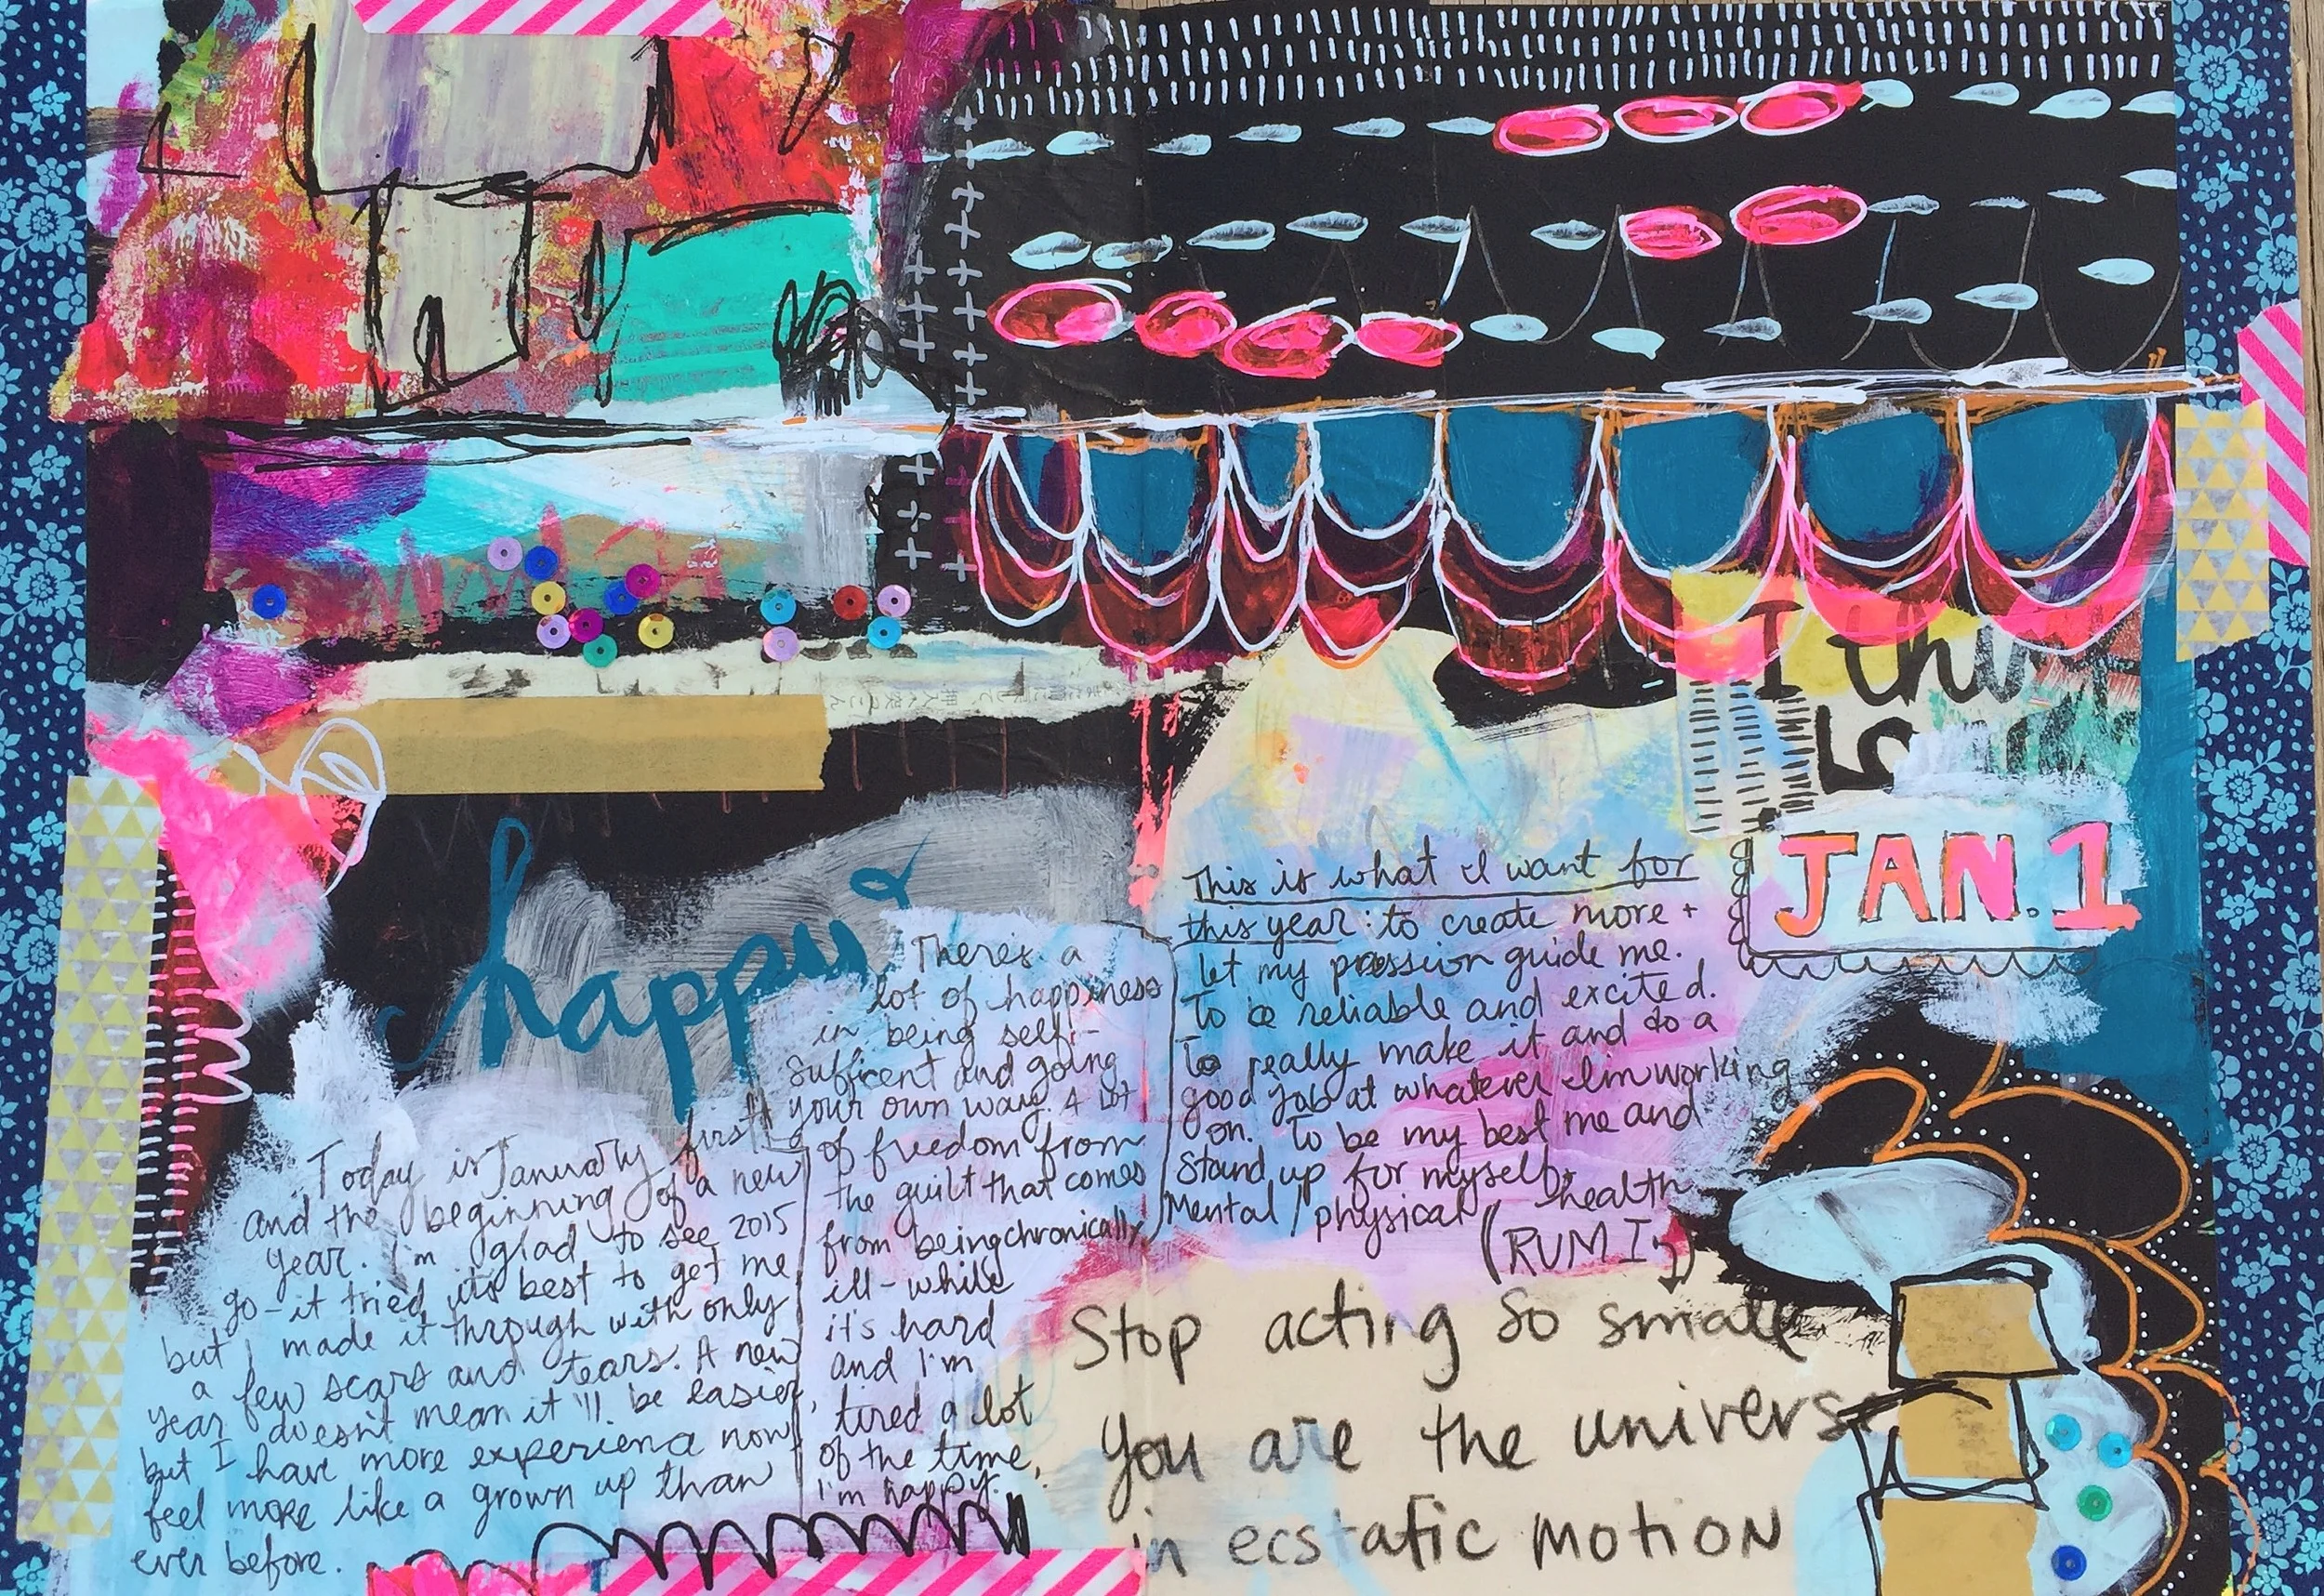 I thi
JAN. 1
happy
Today is January first
and the beginning of a new
year. I'm glad to see 2015
go - it tried its best to get me
but I made it through with only
a few scars and tears. A new
year doesn't mean it'll be easier,
but I have more experience now
feel more like a grown up than
ever before.
There's a
lot of happiness
in being self-
sufficent and going
your own way. A lot
of freedom from
the guilt that comes
from being chronically
ill - while
it's hard
and I'm
tired a lot
of the time,
I'm happy.
This is what I want for
this year: to create more +
let my passion guide me.
To be reliable and excited.
To really make it and do a
good job at whatever I'm working
on. To be my best me and
stand up for myself +
Mental / physical health
(RUMI)
Stop acting so small
You are the universe
in ecstatic motion